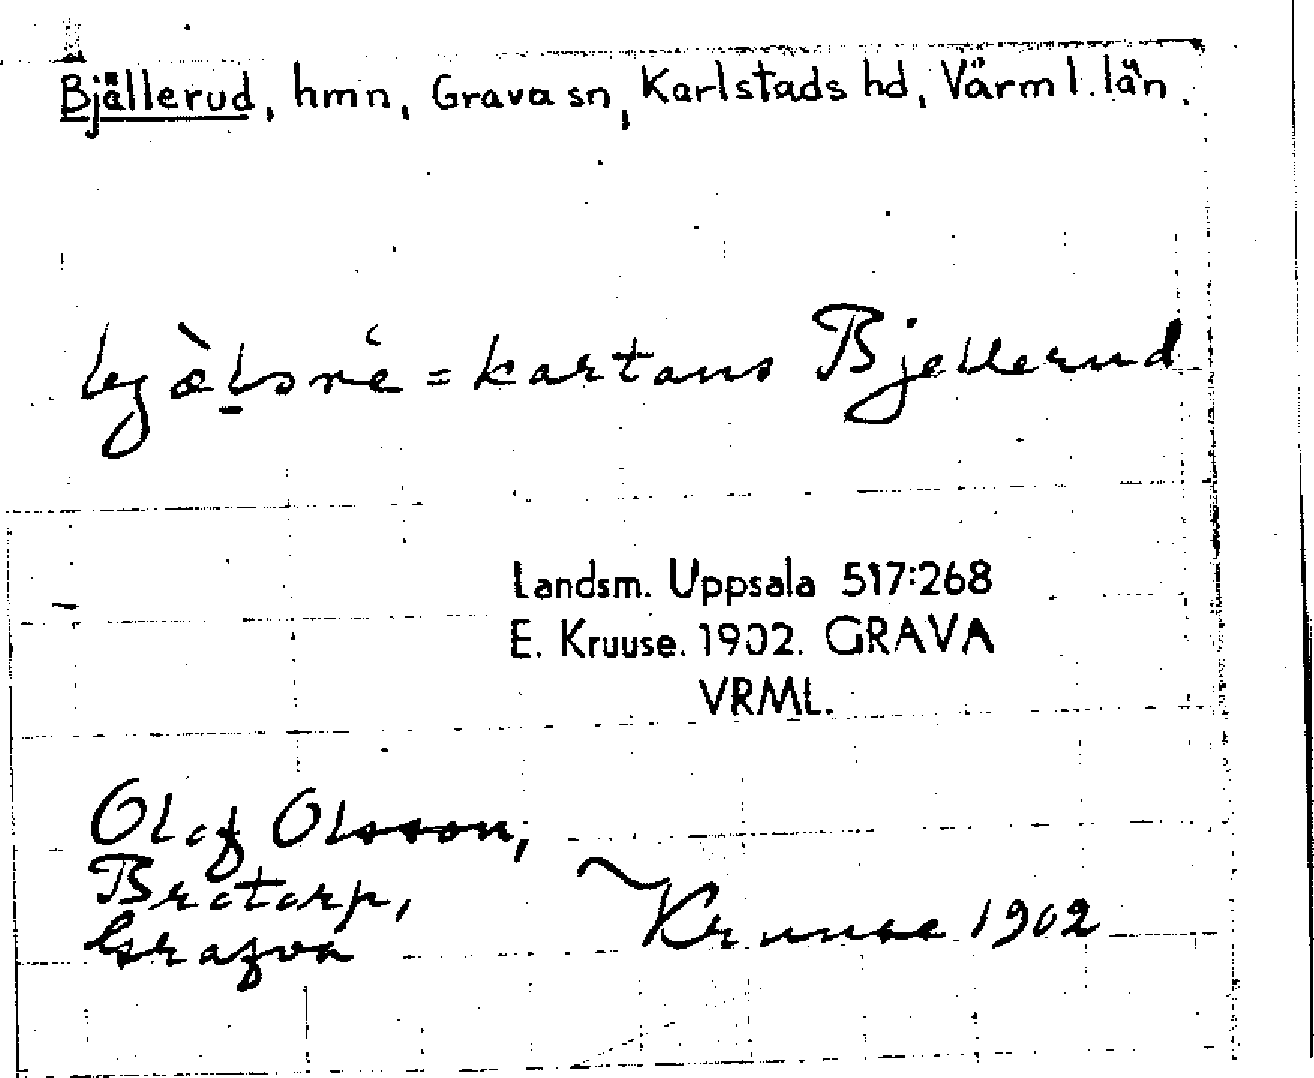 Bjällerud, hmn, Grava sn, Karlstads hd, Värml. län.
= kartans Bjellerud
Landsm. Uppsala 517:268
E. Kruuse. 1902. GRAVA
VRML.
Olof Olsson,
Bratorp,
Grafva
Kruuse 1902